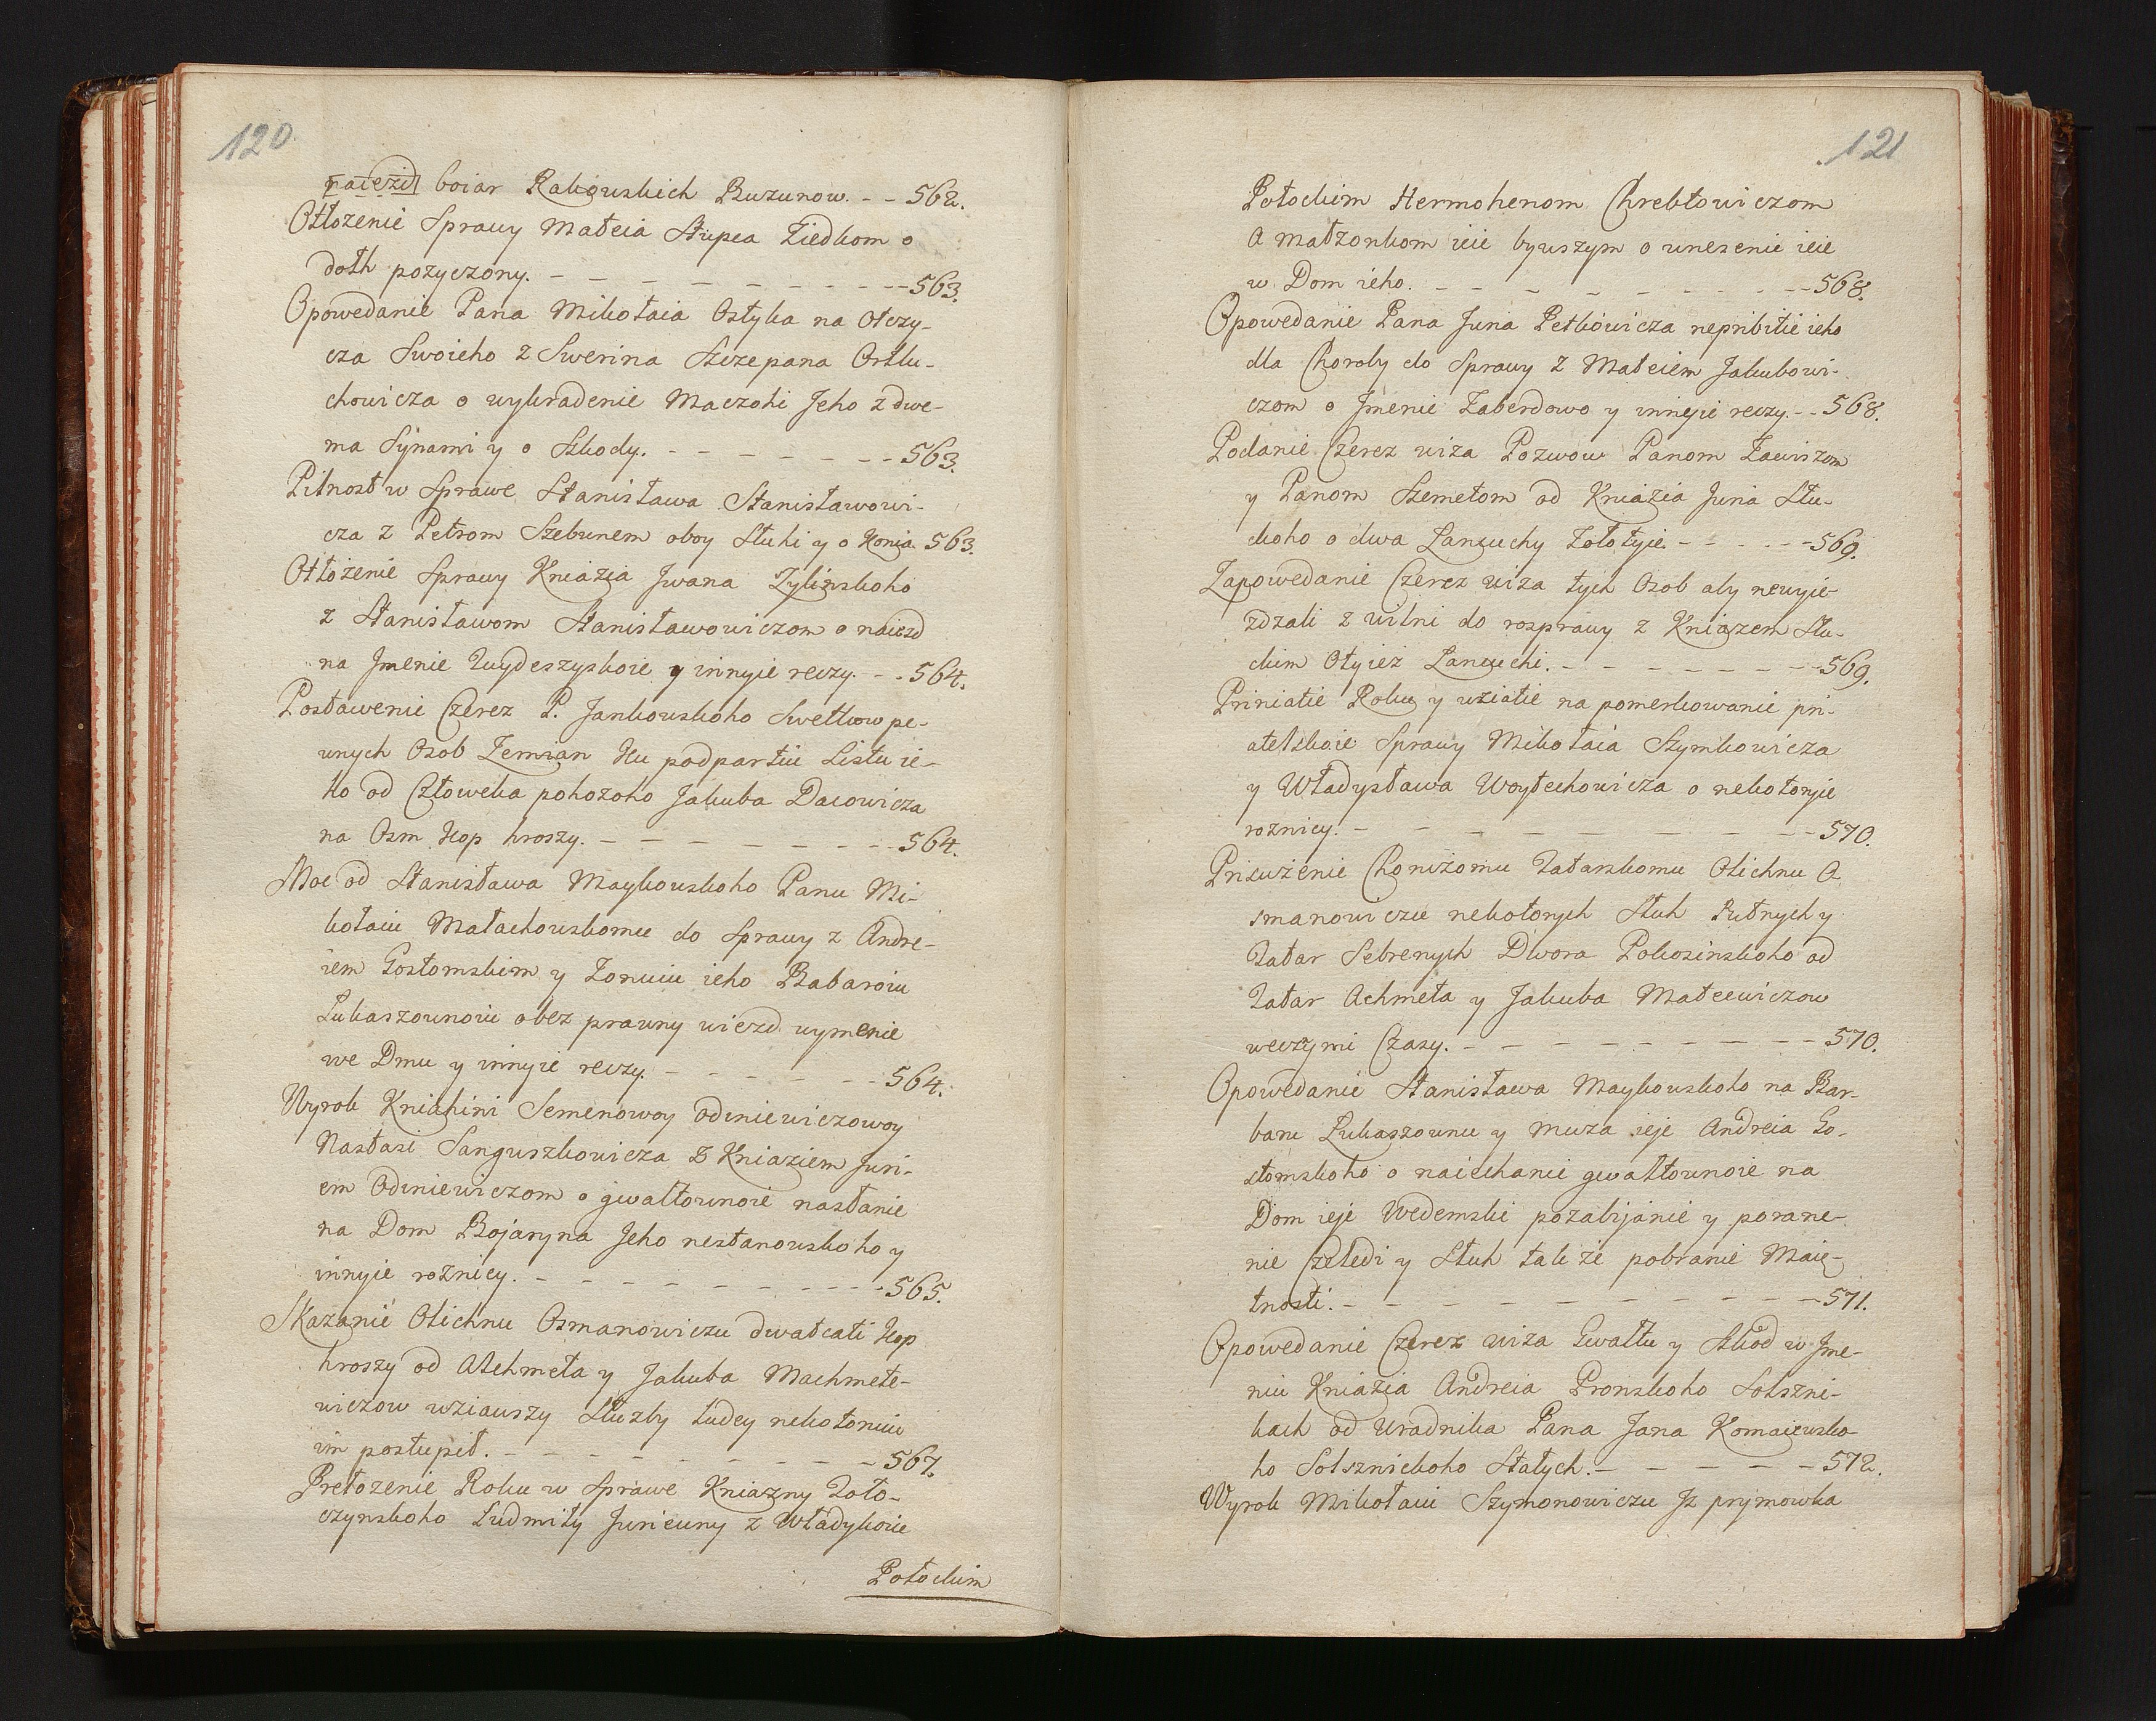 120.
naiezd boiar Rakouskich Buzunow. - - 562.
Otłożenie Sprawy Mateia Stupea Ziedkom o
dołh pożyczony. - - - - - - - - - 563.
Opowedanie Pana Mikołaia Ostyka na Otczy-
cza Swoieho z Swerina Szczepana Ortlu-
chowicza o wykradenie Maczohi Jeho z dwe-
ma Synami y o Szkody. - - - - - - - 563.
Pilnost w Sprawe Stanisława Stanisławowi-
cza z Petrom Szebunem oboy Sluhi y o Konia. 563.
Otłożenie Sprawy Kniazia Jwana Żylińskoho
z Stanisławom Stanisławowiczom o naiezd
na Jmenie Zuydeszyskoie y innyie reczy. - - 564.
Postawenie Czerez P. Jankouskoho Swetkow pe-
wnych Osob Zemian Ku podpartiu Listu ie-
ho od Człoweka pohożoho Jakuba Dacowicza
na Osm Kop hroszy. - - - - - - - 564.
Moc od Stanisława Maykouskoho Panu Mi-
kołaiu Małachouskomu do Sprawy z Andre-
iem Gostomskim y Żonuiu ieho Babaroiu
Łukaszounoiu o bez prawny wiezd wymenie
we Dmu y innyie reczy. - - - - - - 564.
Wyrok Kniahini Semenowoy Odiniewiczowoy
Nastasi Sanguszkowicza z Kniaziem Juri-
em Odiniewiczom o gwałtownoie nasłanie
na Dom Bojaryna Jeho nestanouskoho y
innyie rożnicy. - - - - - - - - - 565.
Skazanie Olichnu Osmanowiczu dwatcati Kop
hroszy od Alehmeta y Jakuba Machmete-
wiczow wziauszy Służby Ludey nekotoruiu
im postupił. - - - - - - - - - 567.
Prełożenie Roku w Sprawe Kniażny Zoło-
czynskoho Ludmiły Juriewny z Władykoie
Połockim
121
Połockim Hermohenom Chrebtowiczom
A małżonkom ieie bywszym o wnesenie ieie
w Dom ieho. - - - - - - - - - 568.
Opowedanie Pana Juria Petkowicza nepribitie ieho
dla Choroby do Sprawy z Mateiem Jakubowi-
czom o Jmenie Zaberdowo y innyie reczy. - - 568.
Podanie Czerez wiża Pozwow Panom Zawiszom
y Panom Szemetom od Kniazia Juria Słu-
ckoho o dwa Łancuchy Zołotyie. - - - - - 569.
Zapowedanie Czerez wiża tych Osob aby newyie-
zdzali z wilni do rosprawy z Kniazem Słu-
ckim Otyież Łancuchi. - - - - - - - - 569.
Priniatie Roku y wziatie na pomerkowanie pri-
atelskoie Sprawy Mikołaia Szymkowicza
y Władysława Woytechowicza o nekotoryie
rożnicy. - - - - - - - - - - - 570.
Prisużenie Chorużomu Tatarskomu Olichnu O-
smanowiczu nekotorych Słuh Putnych y
Tatar Sebrenych Dwora Pokosinskoho od
Tatar Achmeta y Jakuba Mateewiczow
weczymi Czasy. - - - - - - - - - 570.
Opowedanie Stanisława Maykouskoho na Bar-
baru Łukaszounu y Muża ieje Andreia Go-
stomskoho o naiechanie gwałtownoie na
Dom ieje Wedemski pozabijanie y porane-
nie Czeledi y Słuh także pobranie Maie-
tnosti. - - - - - - - - - - - 571.
Opowedanie Czerez wiża Gwałtu y Szkod w Jme-
niu Kniazia Andreia Pronskoho Solszni-
kach od Uradnika Pana Jana Komaiewsko-
ho Solsznickoho Stałych. - - - - - 572.
Wyrok Mikołaiu Szymonowiczu Jz prymowka